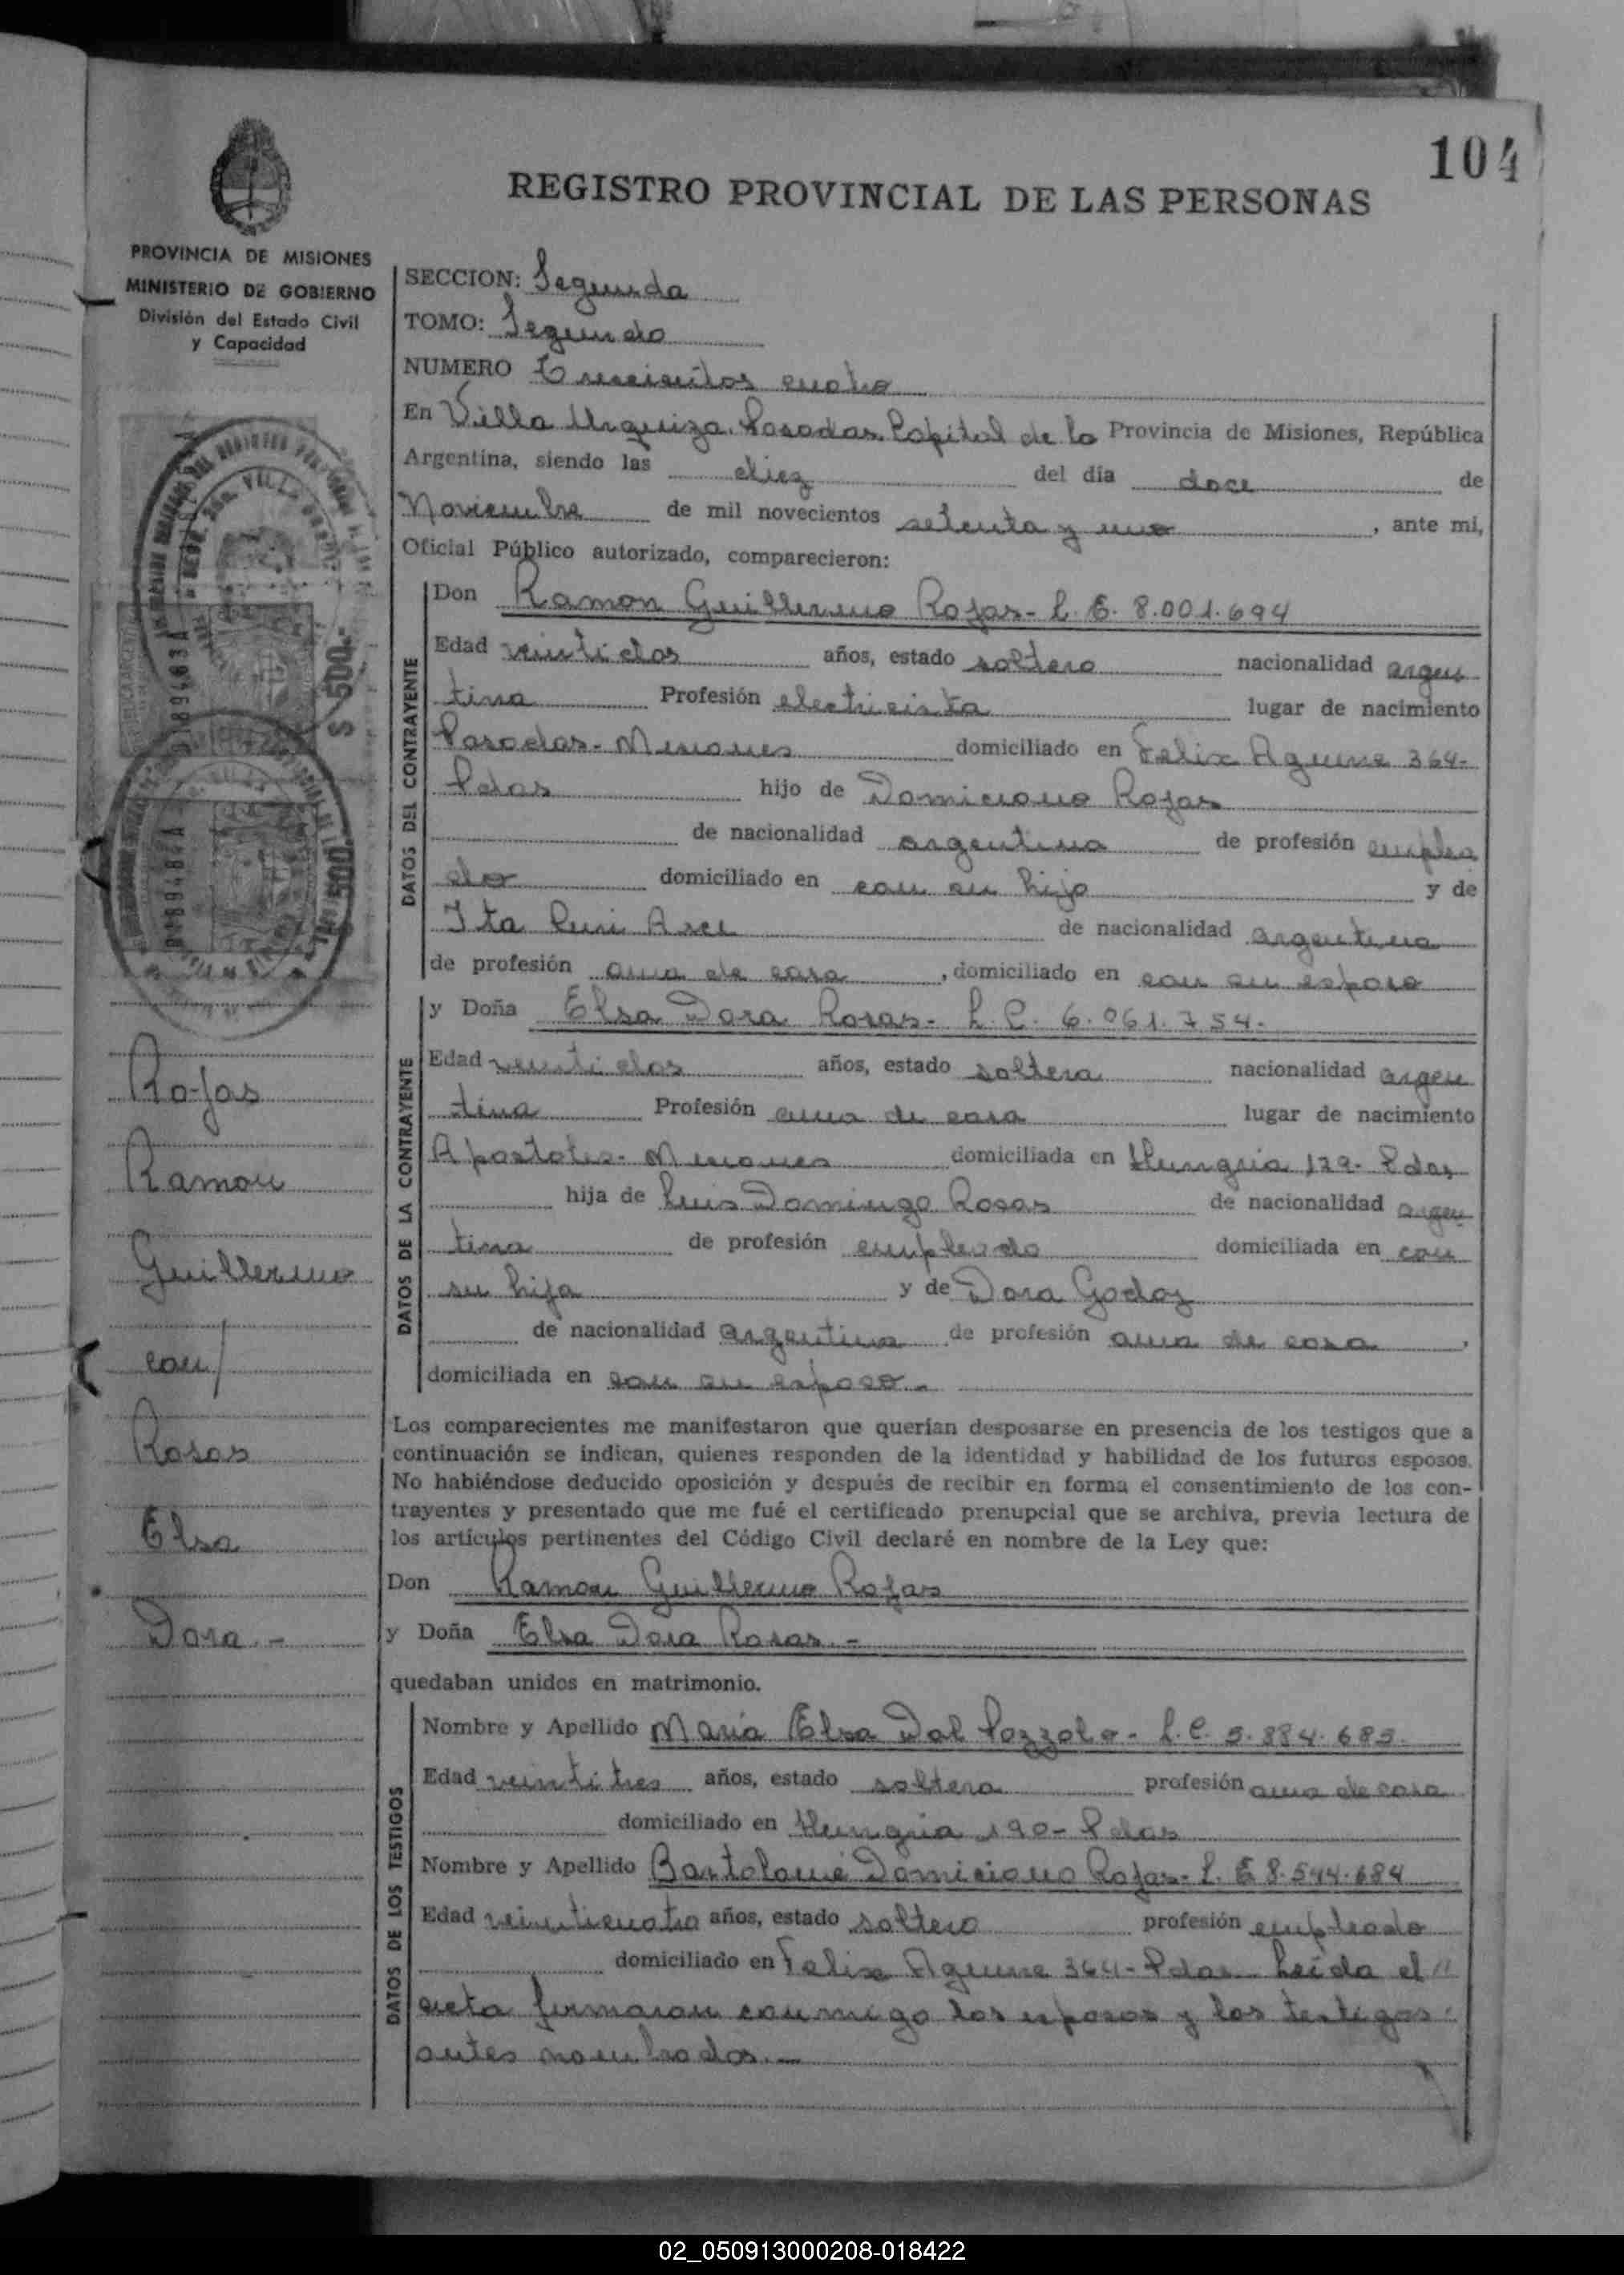 104
REGISTRO PROVINCIAL DE LAS PERSONAS
PROVINCIA DE MISIONES
MINISTERIO DE GOBIERNO
División del Estado Civil
y Capacidad
SECCION: Segunda
TOMO: Segundo
NUMERO Trescientos cuatro
En Villa Urquiza. Posadas. Capital de la Provincia de Misiones, República
Argentina, siendo las diez del día doce de
Noviembre de mil novecientos setenta y uno, ante mi,
Oficial Público autorizado, comparecieron:
DATOS DEL CONTRAYENTE
Don Ramon Guillermo Rojas- L. E. 8.001.694
Edad veintidos años, estado soltero nacionalidad argen
tina Profesión electricista lugar de nacimiento
Posadas- Misiones domiciliado en Felix Aguirre 364-
Pdas hijo de Domiciano Rojas
de nacionalidad argentina de profesión emplea
do domiciliado en con su hijo y de
Ita Arce de nacionalidad argentina
de profesión ama de casa, domiciliado en con su esposo
DATOS DE LA CONTRAYENTE
y Doña Elsa Dora Rosas- L. C. 6.061.754-
Edad veintidos años, estado soltera nacionalidad argen
tina Profesión ama de casa lugar de nacimiento
Apostoles- Misiones domiciliada en Hungria 129- Pdas
hija de Luis Domingo Rosas de nacionalidad argen
tina de profesión empleado domiciliada en con
su hija y de Dora Godoy
de nacionalidad argentina de profesión ama de casa,
domiciliada en con su esposo.-
Los comparecientes me manifestaron que querían desposarse en presencia de los testigos que a
continuación se indican, quienes responden de la identidad y habilidad de los futuros esposos.
No habiéndose deducido oposición y después de recibir en forma el consentimiento de los con-
trayentes y presentado que me fué el certificado prenupcial que se archiva, previa lectura de
los artículos pertinentes del Código Civil declaré en nombre de la Ley que:
Don Ramon Guillermo Rojas
y Doña Elsa Dora Rosas.-
quedaban unidos en matrimonio.
DATOS DE LOS TESTIGOS
Nombre y Apellido Maria Elsa Dal Pozzolo- L.C. 5.884.685.
Edad veintitres años, estado soltera profesión ama de casa
domiciliado en Hungria 190- Pdas
Nombre y Apellido Bartolomé Domiciano Rojas- L. E 8.544.684
Edad veinticuatro años, estado soltero profesión empleado
domiciliado en Felix Aguirre 364- Pdas Leída el
acta firmaron conmigo los esposos y los testigos
antes nombrados.-
$ 500.-
Rojas
Ramon
Guillermo
con/
Rosas
Elsa
Dora.-
02_050913000208-018422